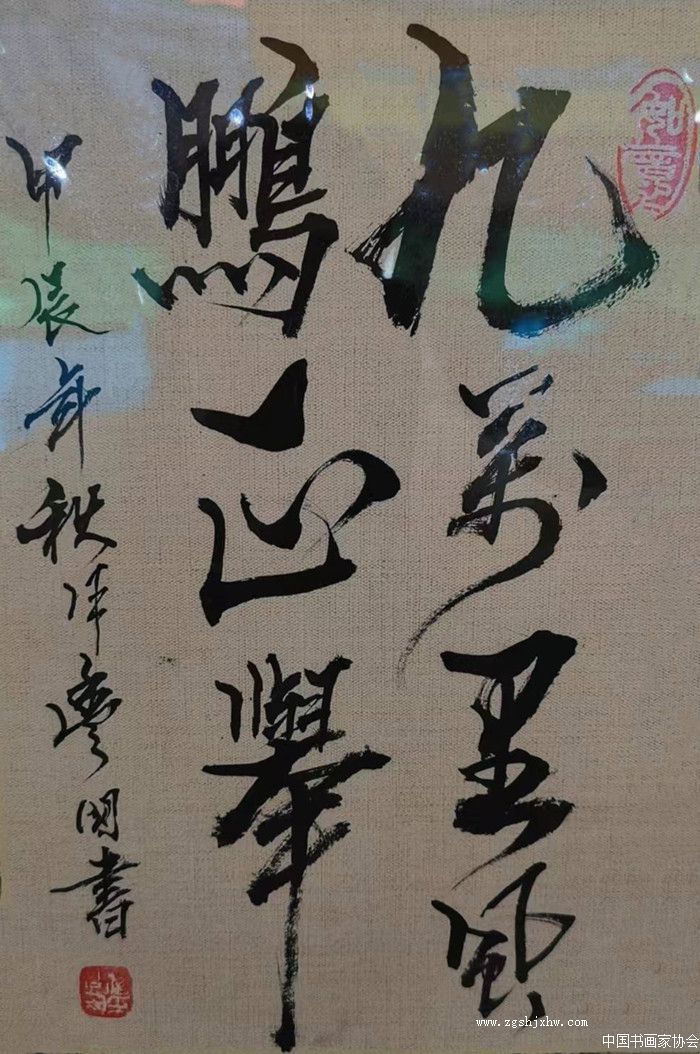 九万里風
鵬正舉
甲辰年秋月
國書
www.zgshjxhw.com
中国书画家协会